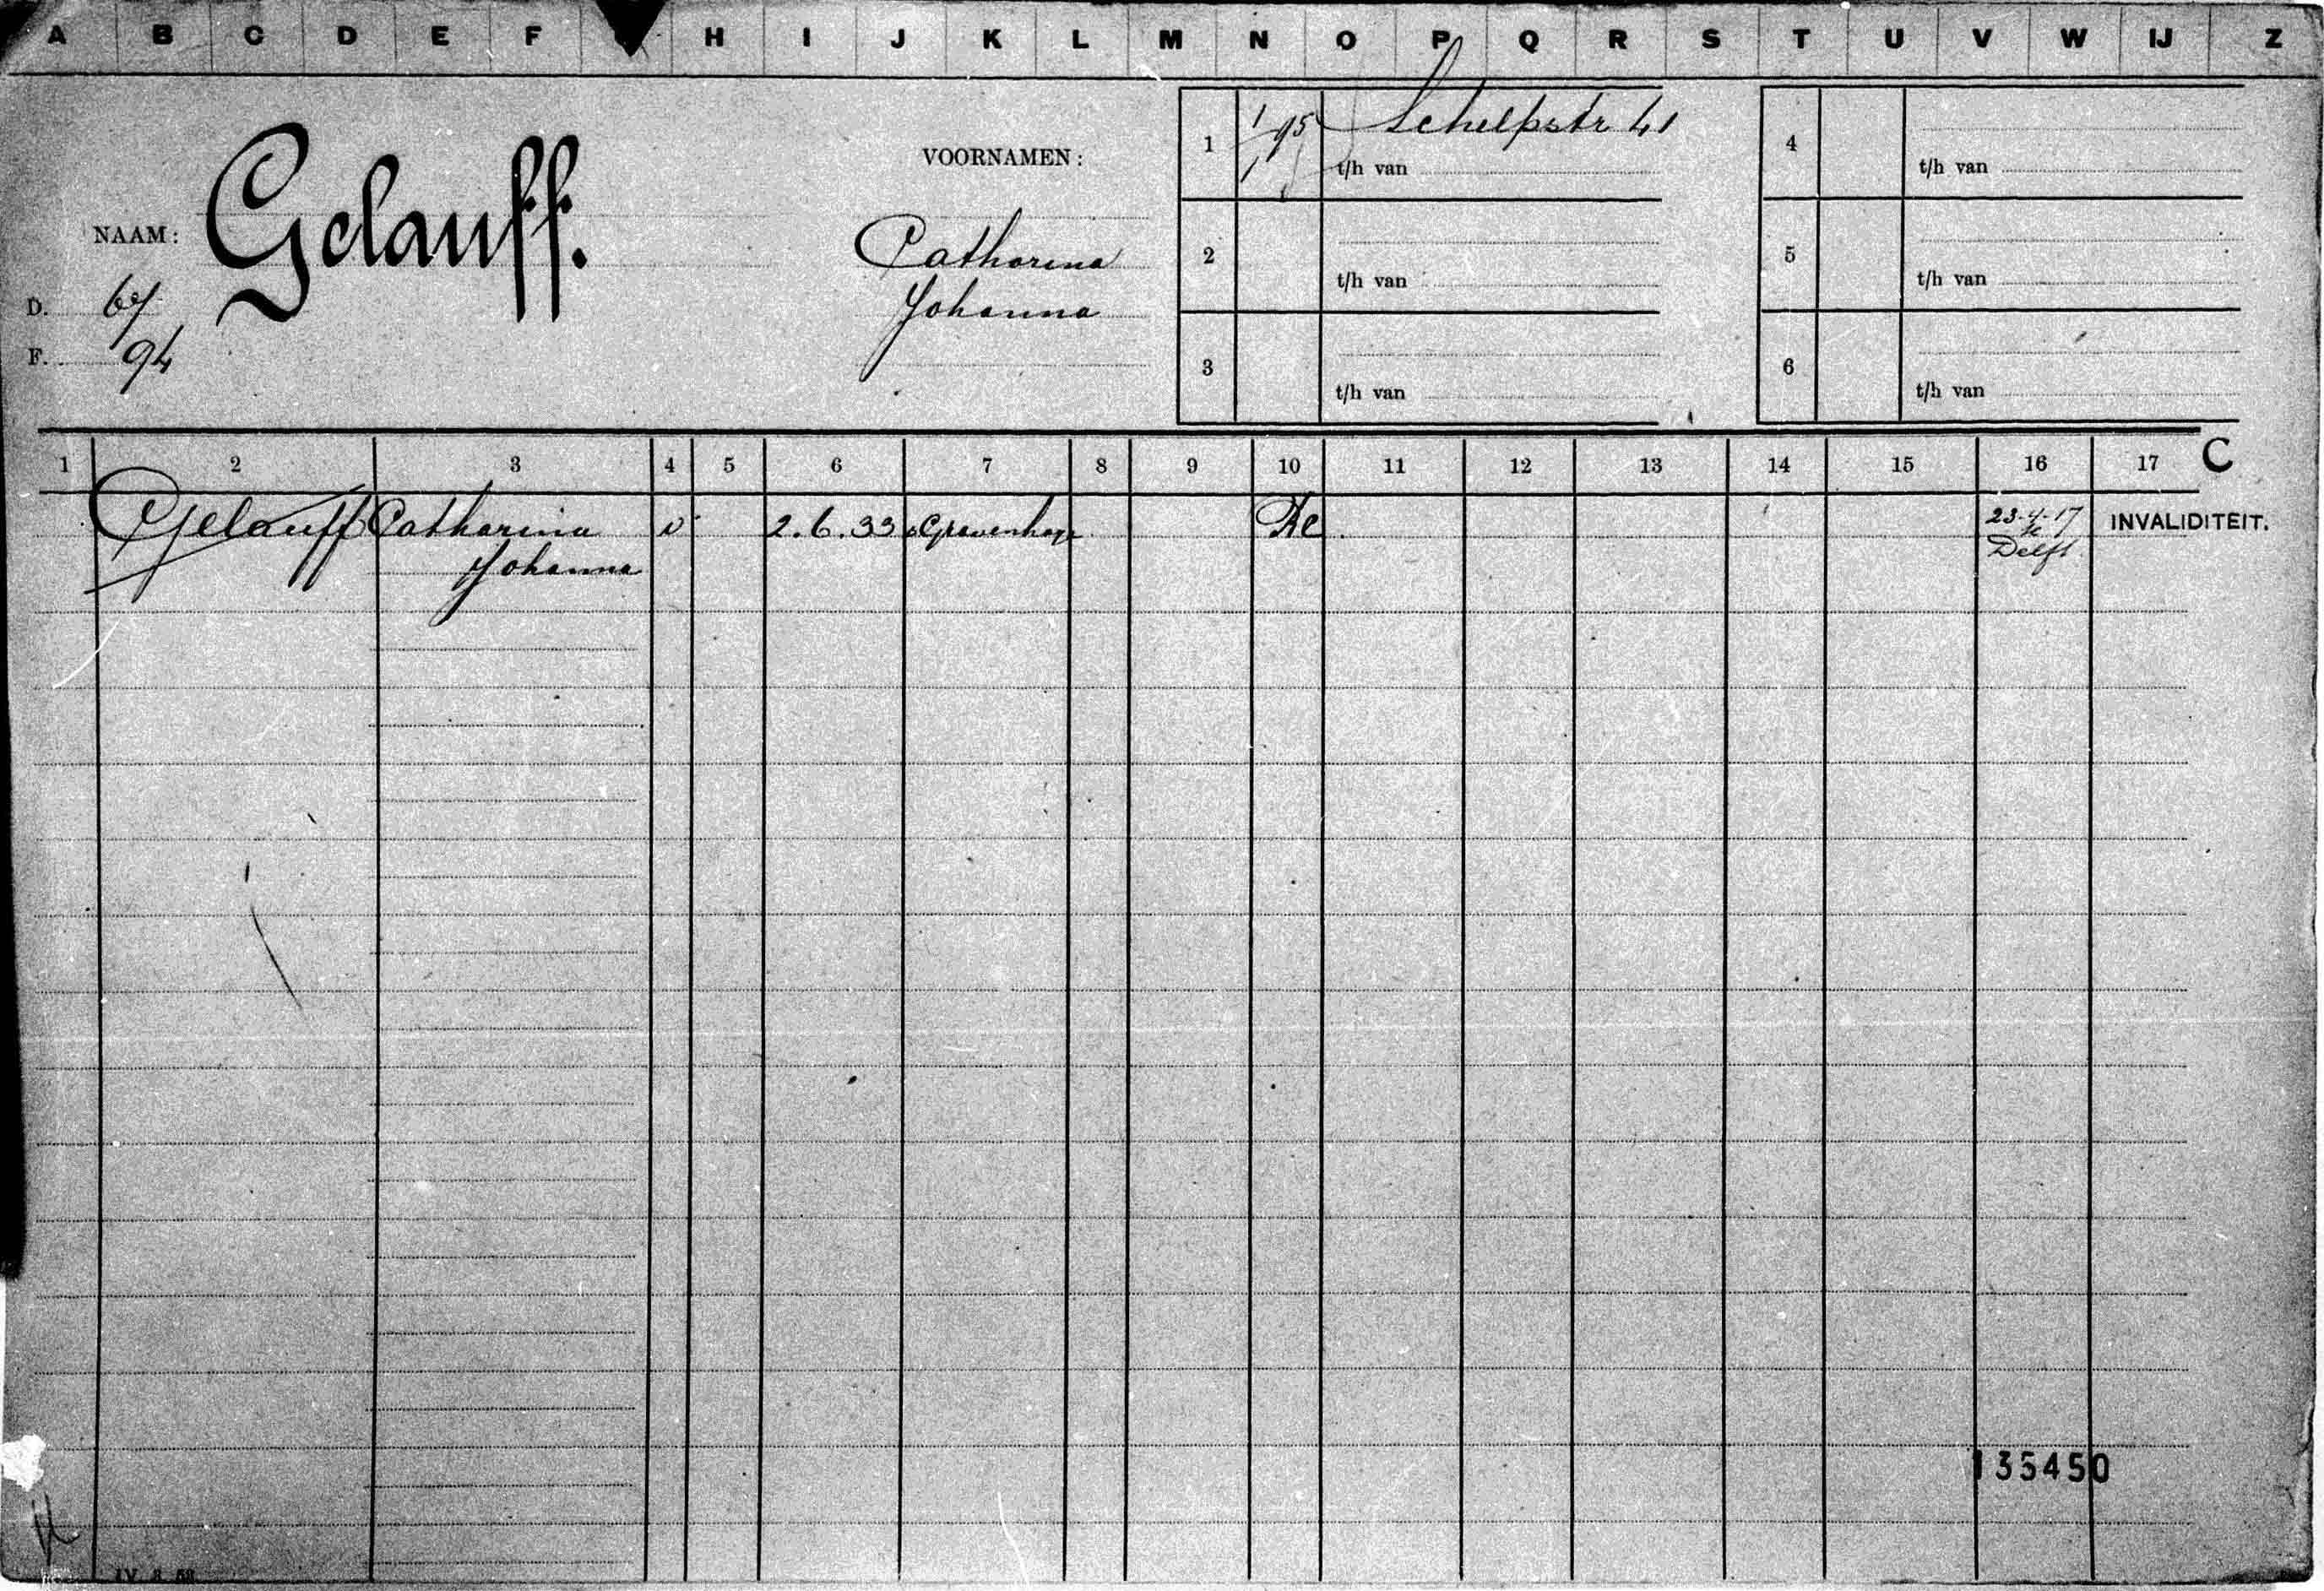 A B C D E F H I J K L M N O P Q R S T U V W IJ Z
NAAM: Gelauff.
D. 67
F. 94
VOORNAMEN:
Catharina
Johanna
1 1/1 95 Schelpstr 41
t/h van
2
t/h van
3
t/h van
4
t/h van
5
t/h van
6
t/h van
1 2 3 4 5 6 7 8 9 10 11 12 13 14 15 16 17 C
Gelauff Catharina v 2.6.33 sGravenhage RC. 23-4-17 INVALIDITEIT.
Johanna te
Delft
135450